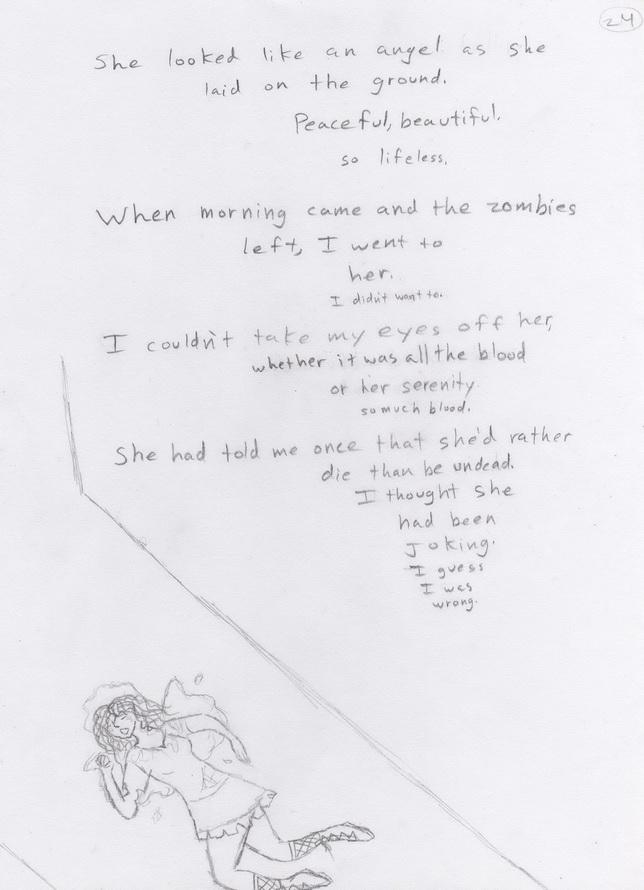 24
She looked like an angel as she
laid on the ground.
Peaceful, beautiful.
so lifeless.
When morning came and the zombies
left, I went to
her.
I didn't want to.
I couldn't take my eyes off her,
whether it was all the blood
or her serenity.
so much blood.
She had told me once that she'd rather
die than be undead.
I thought she
had been
joking.
I guess
I was
wrong.